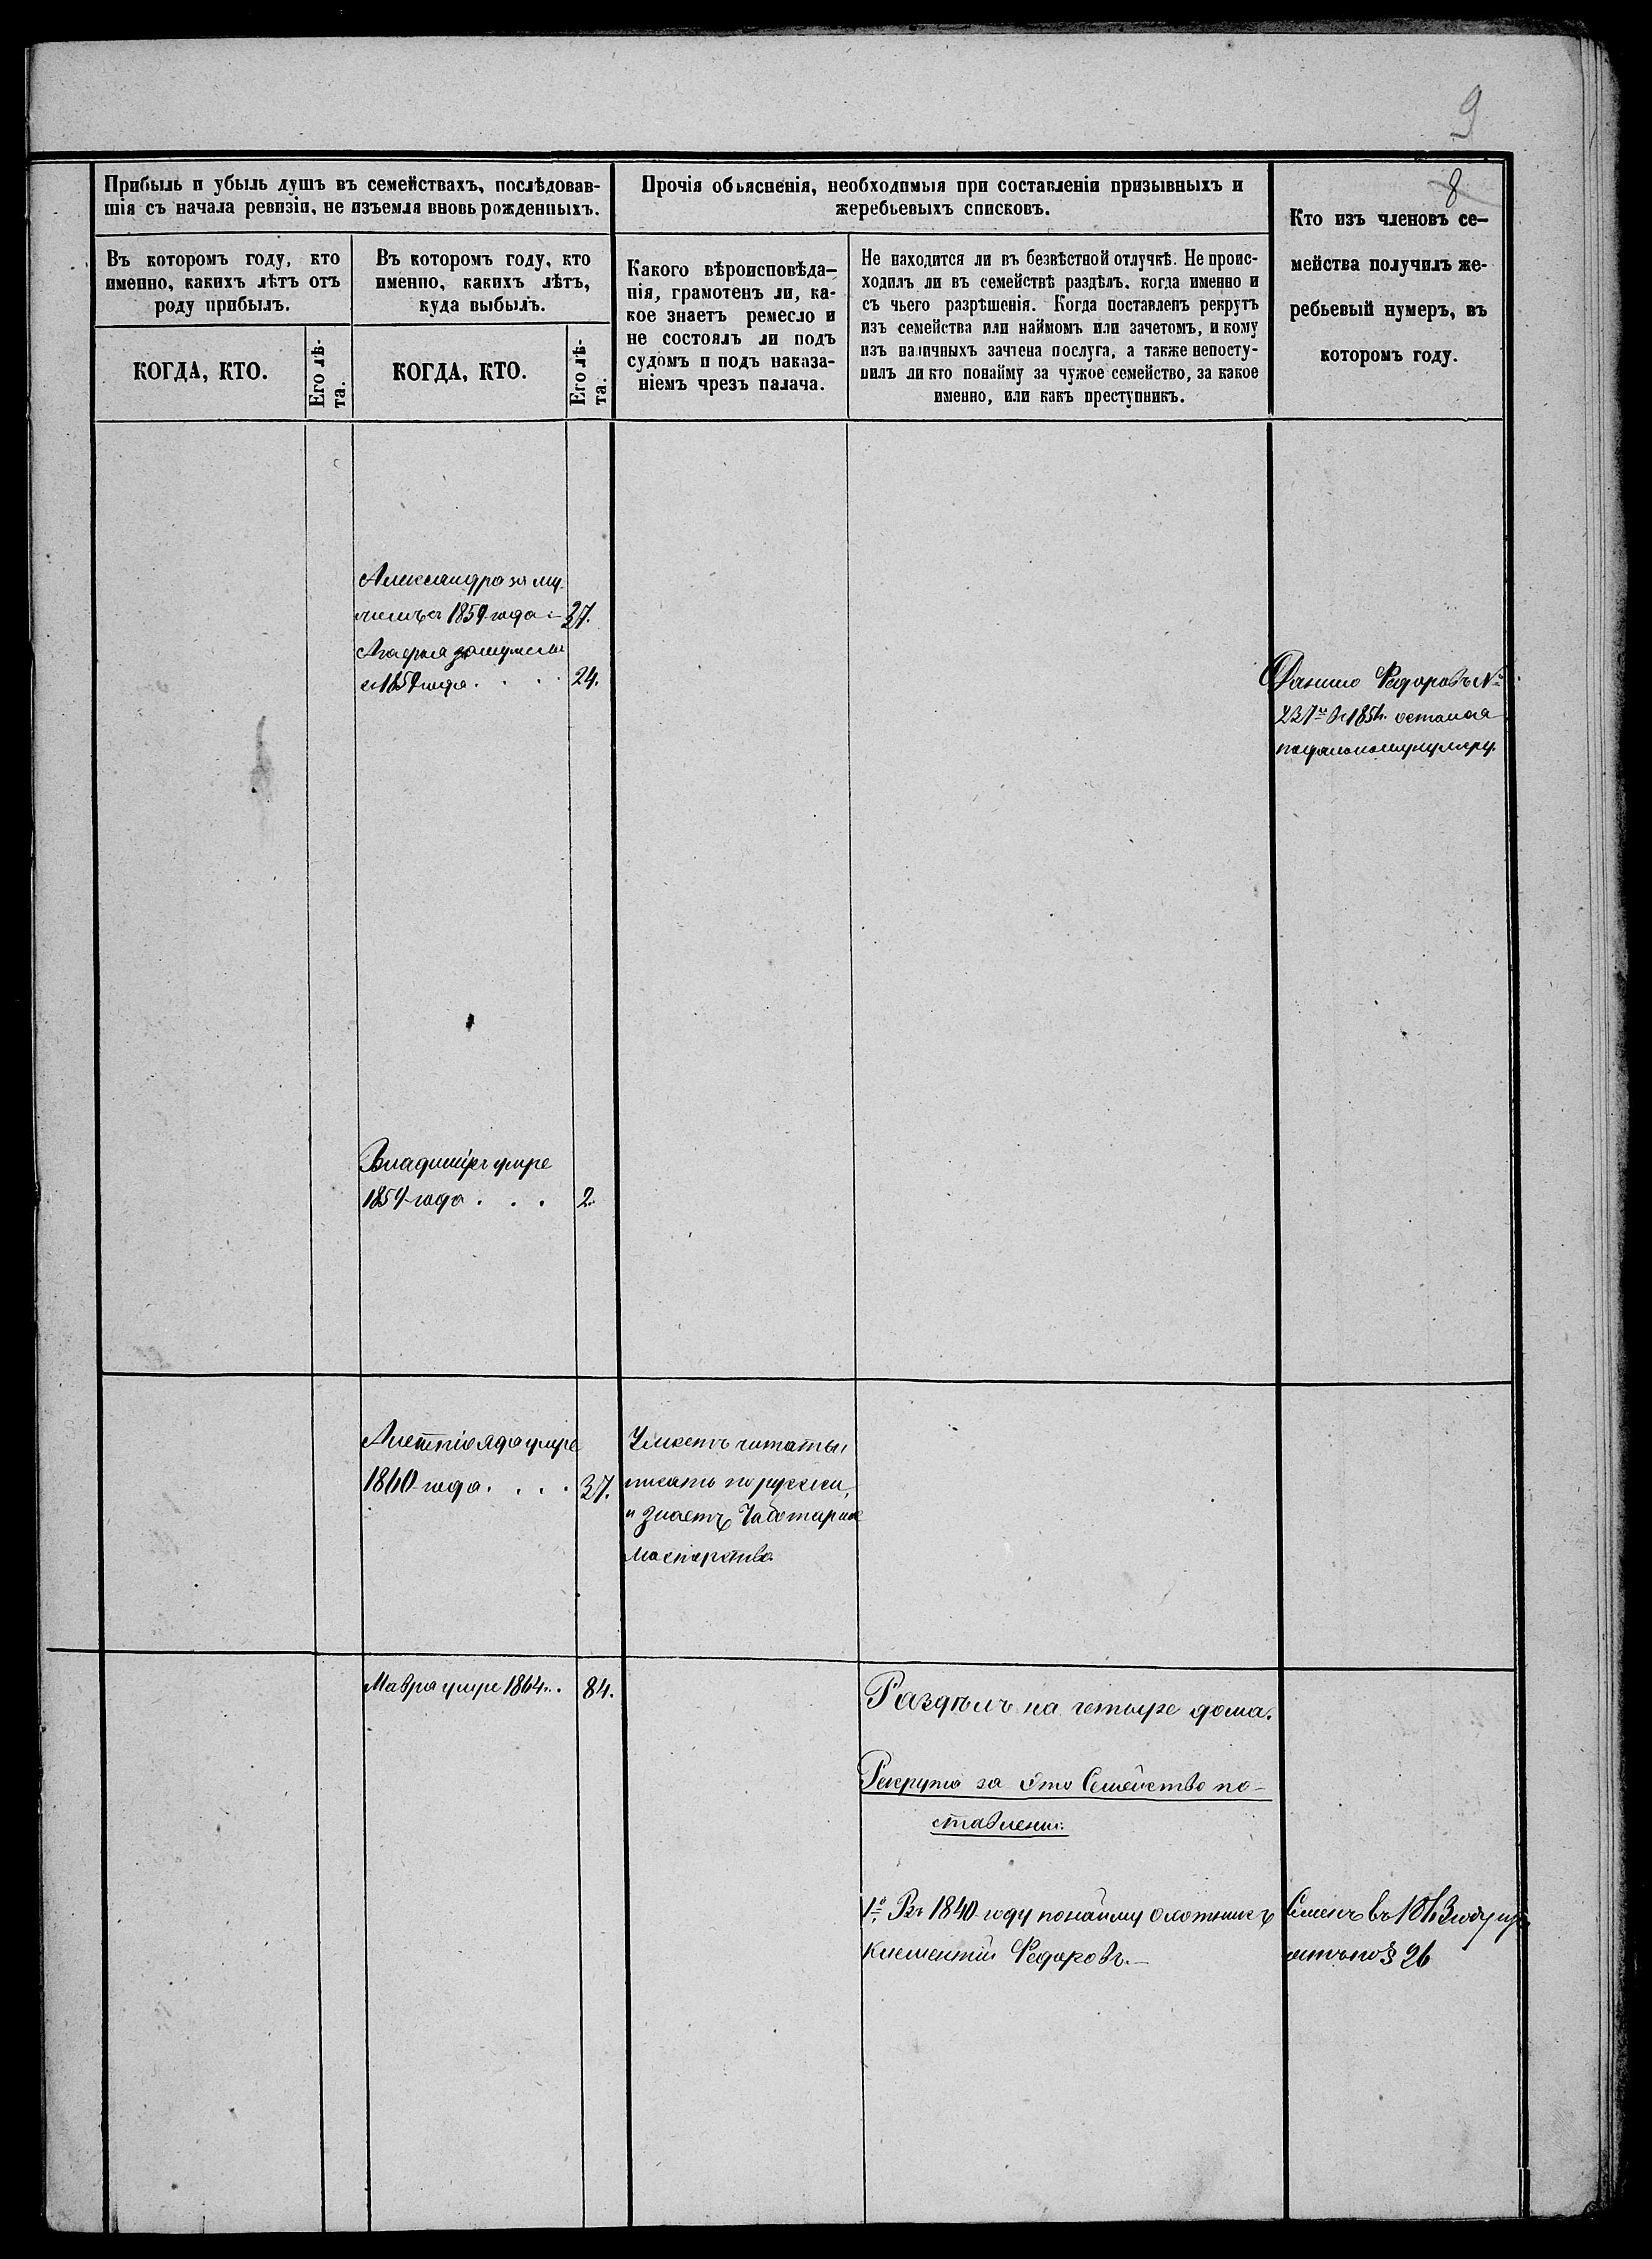 9
8
Прибыль и убыль душъ въ семействахъ, послѣдовав-
шія съ начала ревизіи, не изъемля вновь рожденныхъ.
Прочія обьясненія, необходимыя при составленіи призывныхъ и
жеребьевыхъ списковъ.
Кто изъ членовъ се-
мейства получилъ же-
ребьевый нумеръ, въ
которомъ году.
Въ которомъ году, кто
именно, какихъ лѣтъ отъ
роду прибылъ.
Въ которомъ году, кто
именно, какихъ лѣтъ,
куда выбылъ.
Какого вѣроисповѣда-
нія, грамотенъ ли, ка-
кое знаетъ ремесло и
не состоялъ ли подъ
судомъ и подъ наказа-
ніемъ чрезъ палача.
Не находится ли въ безвѣстной отлучкѣ. Не проис-
ходилъ ли въ семействѣ раздѣлъ. когда именно и
съ чьего разрѣшенія. Когда поставленъ рекрутъ
изъ семейства или наймомъ или зачетомъ, и кому
изъ наличныхъ зачтена послуга, а также непосту-
пилъ ли кто понайму за чужое семейство, за какое
именно, или какъ преступникъ.
КОГДА, КТО.
Его лѣ-
та.
КОГДА, КТО.
Его лѣ-
та.
Александра за му-
съ 1859 года 27.
замужемъ
съ 1859 года . . . . 24.
Данило Федоровъ №
237 остался
Владиміръ умре
1859 года . . . 2.
умре
1860 года . . . . 37.
Умѣетъ читать и
писать по русски,
и знаетъ Чеботарное
мастерство
Мавра умре 1864 . . 84.
Раздѣлъ на четыре дома.
Рекрута за это Семейство по-
ставлены:
1е, Въ 1840 году понайму охотникъ
Климентій Федоровъ.—
Семенъ въ
по § 26